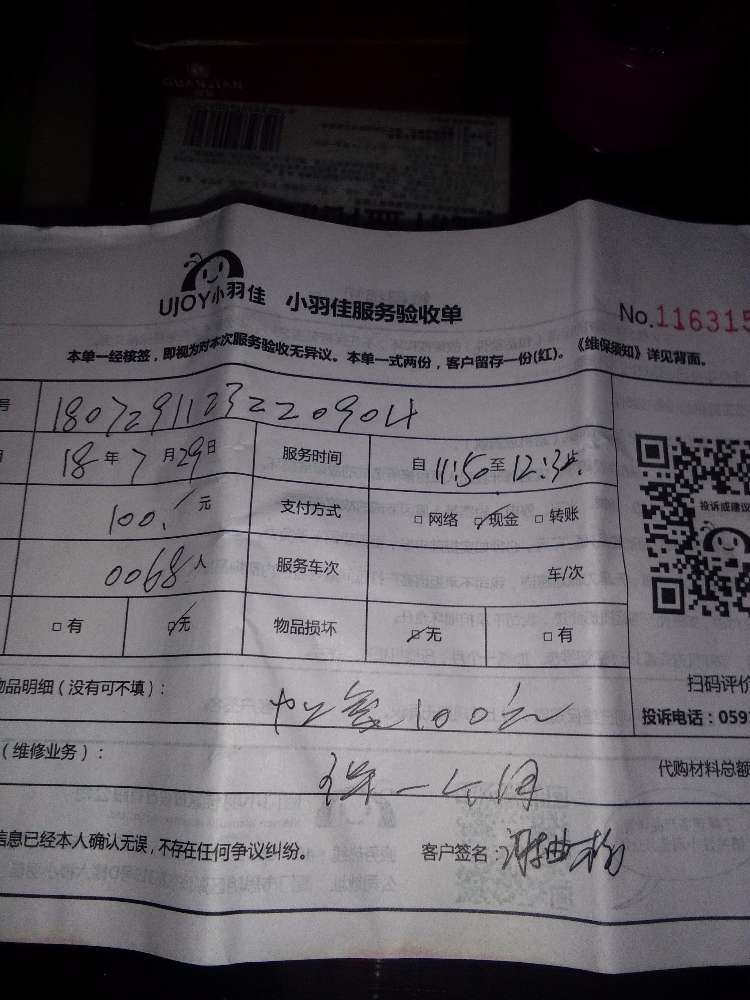 UJOY小羽佳 小羽佳服务验收单 No.116315
本单一经核签，即视为对本次服务验收无异议。本单一式两份，客户留存一份(红)。《维保须知》详见背面。
号 18072911232220904
18年7月29日 服务时间 自11:50至12:3
100.元 支付方式 □网络 □现金 □转账
0068人 服务车次 车/次
□有 □无 物品损坏 □无 □有
投诉或建议
扫码评价
物品明细（没有可不填）： 100元
投诉电话：059
（维修业务）： 保一个月 代购材料总额
信息已经本人确认无误，不存在任何争议纠纷。 客户签名：谢